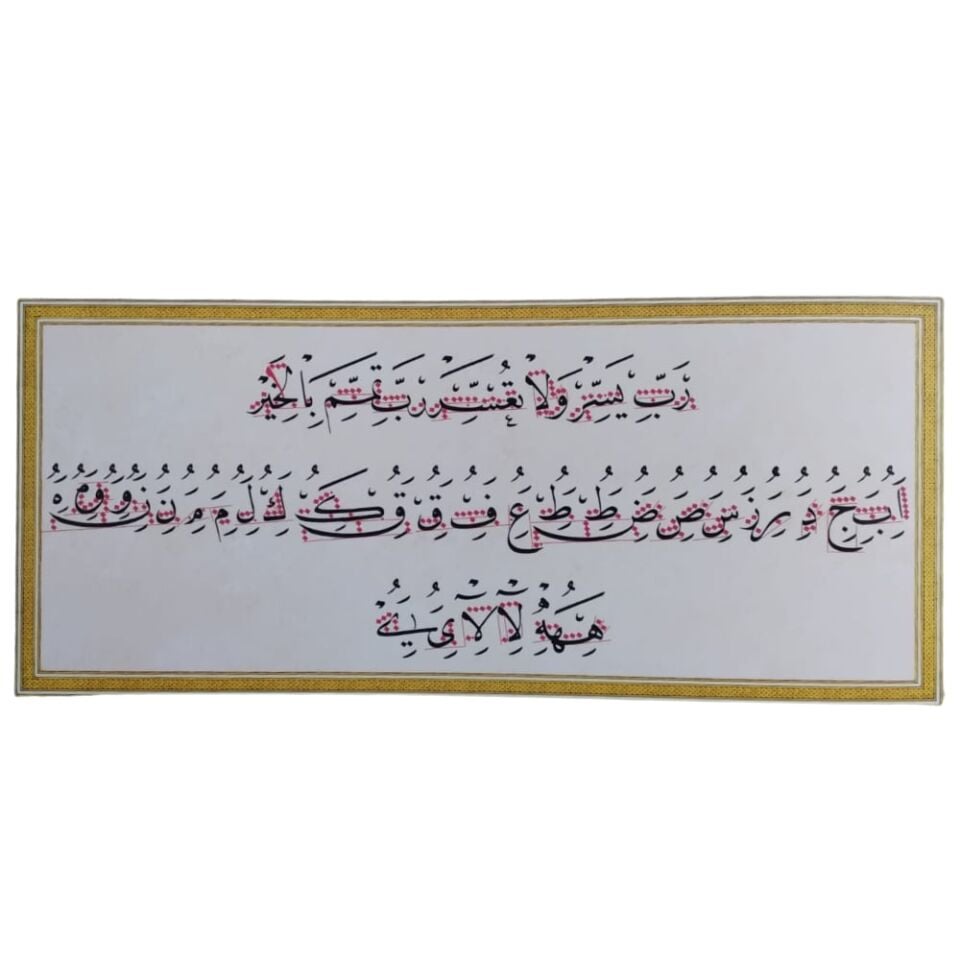 رَبِّ يَسِّرْ وَلَا تُعَسِّرْ رَبِّ تَمِّمْ بِالْخَيْرِ
ا ب ج د ر ز س ص ض ط ط ع ف ق ق ك ك ل م م ن ن و و ه
ههه لا لا ى ي